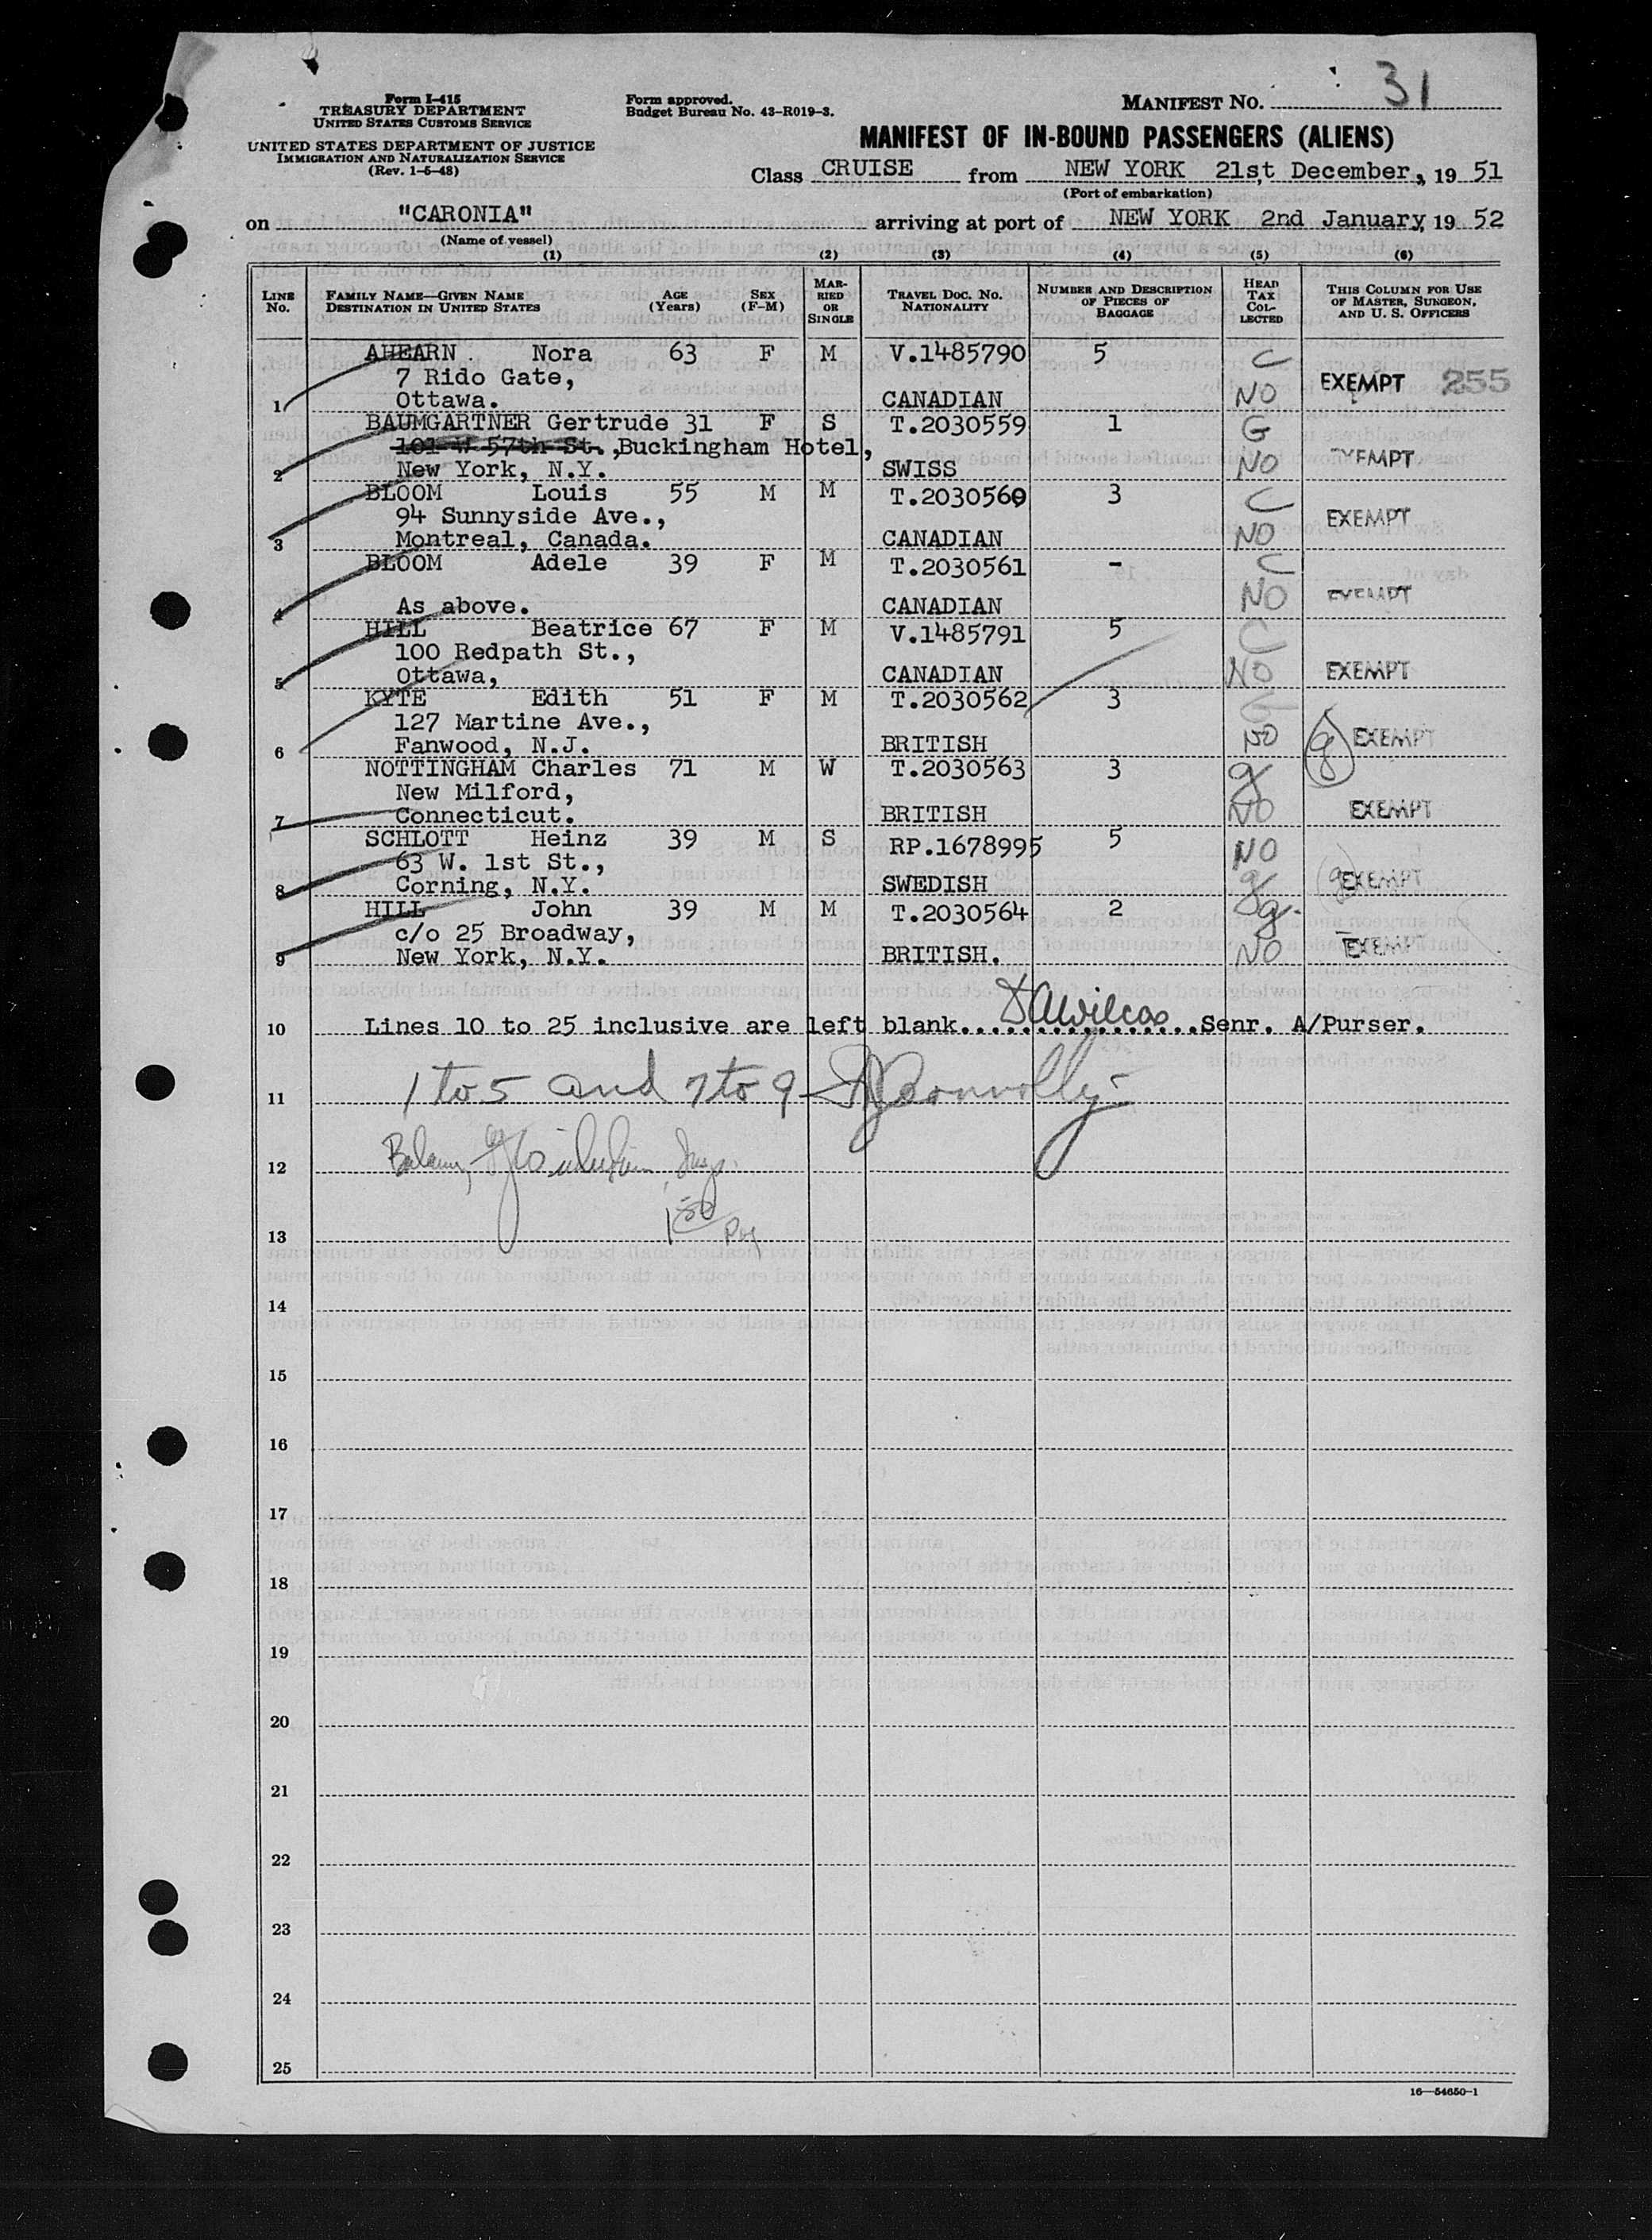 31
Form I-415
TREASURY DEPARTMENT
UNITED STATES CUSTOMS SERVICE
UNITED STATES DEPARTMENT OF JUSTICE
IMMIGRATION AND NATURALIZATION SERVICE
(Rev. 1-5-48)
Form approved.
Budget Bureau No. 43-R019-3.
MANIFEST NO.
MANIFEST OF IN-BOUND PASSENGERS (ALIENS)
Class CRUISE from NEW YORK 21st December, 19 51
(Port of embarkation)
on "CARONIA" arriving at port of NEW YORK 2nd January, 19 52
(Name of vessel)
(1) (2) (3) (4) (5) (6)
LINE NO. FAMILY NAME—GIVEN NAME DESTINATION IN UNITED STATES AGE (YEARS) SEX (F-M) MARRIED OR SINGLE TRAVEL DOC. NO. NATIONALITY NUMBER AND DESCRIPTION OF PIECES OF BAGGAGE HEAD TAX COLLECTED THIS COLUMN FOR USE OF MASTER, SURGEON, AND U. S. OFFICERS
AHEARN Nora 63 F M V.1485790 5 C
7 Rido Gate, EXEMPT 255
1 Ottawa. CANADIAN NO
BAUMGARTNER Gertrude 31 F S T.2030559 1 G
101 W 57th St., Buckingham Hotel,
2 New York, N.Y. SWISS NO EXEMPT
BLOOM Louis 55 M M T.2030560 3 C
94 Sunnyside Ave., EXEMPT
3 Montreal, Canada. CANADIAN NO
BLOOM Adele 39 F M T.2030561 - C
4 As above. CANADIAN NO EXEMPT
HILL Beatrice 67 F M V.1485791 5 C
100 Redpath St.,
5 Ottawa, CANADIAN NO EXEMPT
KYTE Edith 51 F M T.2030562 3
127 Martine Ave.,
6 Fanwood, N.J. BRITISH NO g EXEMPT
NOTTINGHAM Charles 71 M W T.2030563 3 g
New Milford,
7 Connecticut. BRITISH NO EXEMPT
SCHLOTT Heinz 39 M S RP.1678995 5 NO
63 W. 1st St.,
8 Corning, N.Y. SWEDISH g g EXEMPT
HILL John 39 M M T.2030564 2 g
c/o 25 Broadway,
9 New York, N.Y. BRITISH. NO EXEMPT
10 Lines 10 to 25 inclusive are left blank. Senr. A/Purser.
11 1 to 5 and 7 to 9
12
13
14
15
16
17
18
19
20
21
22
23
24
25
16—54650-1